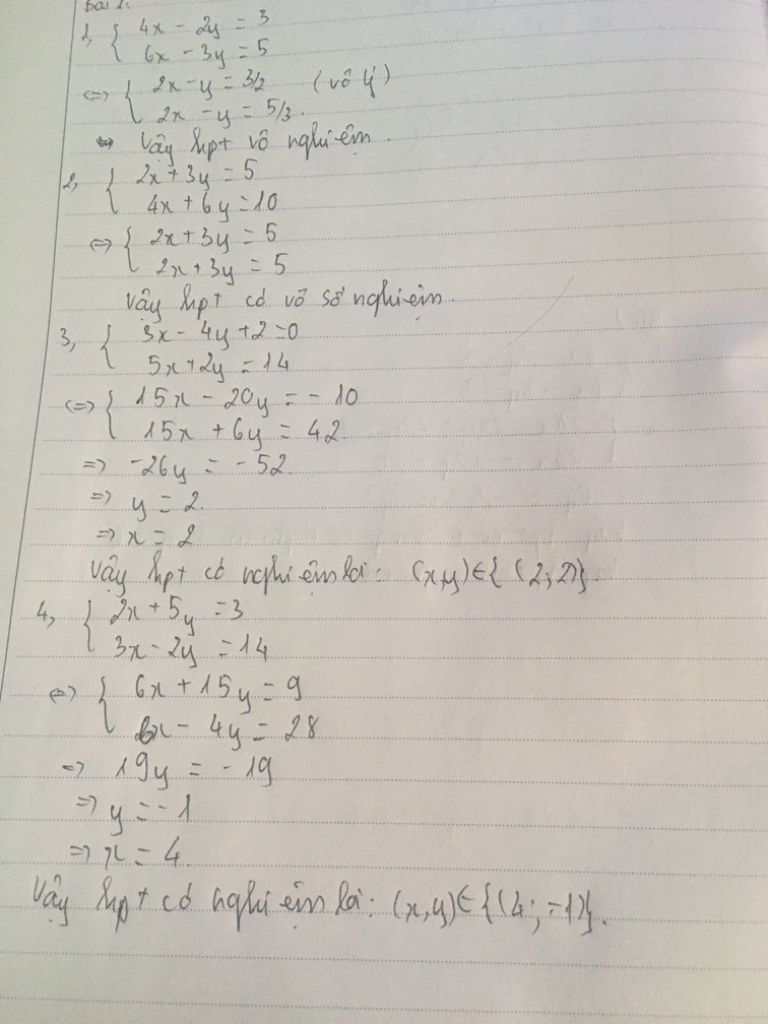 bài 1:
1, { 4x - 2y = 3
6x - 3y = 5
<=> { 2x - y = 3/2 (vô lý)
2x - y = 5/3.
Vậy hpt vô nghiệm.
2, { 2x + 3y = 5
4x + 6y = 10
<=> { 2x + 3y = 5
2x + 3y = 5
Vậy hpt có vô số nghiệm.
3, { 3x - 4y + 2 = 0
5x + 2y = 14
<=> { 15x - 20y = - 10
15x + 6y = 42.
=> -26y = -52.
=> y = 2.
=> x = 2
Vậy hpt có nghiệm là: (x,y) ∈ { (2; 2)}.
4, { 2x + 5y = 3
3x - 2y = 14
<=> { 6x + 15y = 9
6x - 4y = 28
=> 19y = -19
=> y = -1
=> x = 4.
Vậy hpt có nghiệm là: (x,y) ∈ {(4; -1)}.